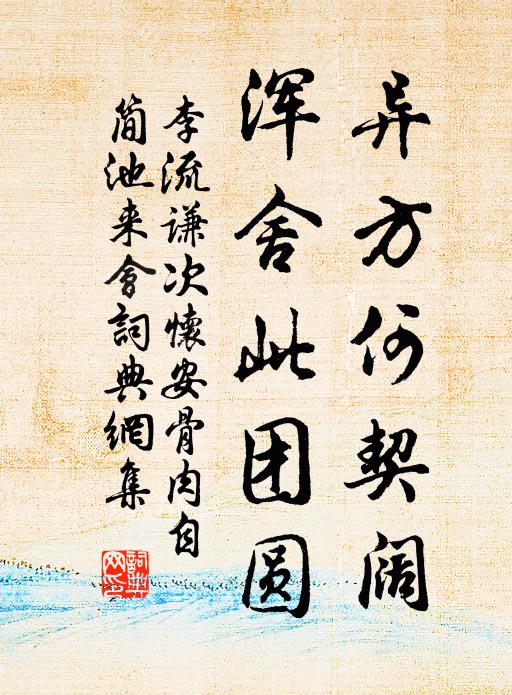 异方何契阔
浑舍此团圆
李流谦次懷安骨肉自
简池来會詞典網集
詞典网集